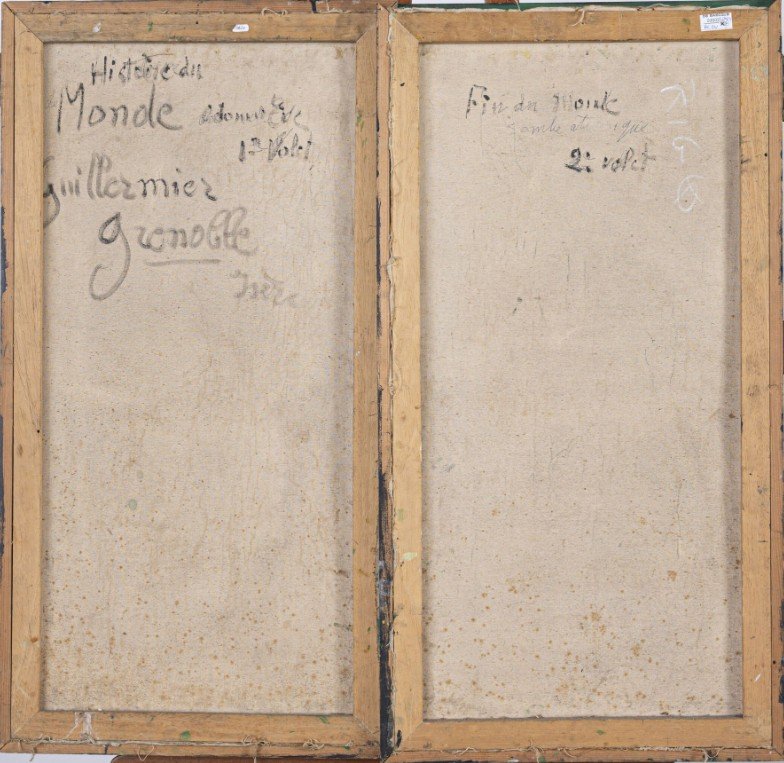 Histoire du
Monde Adam Eve
1er Volet
Guillermier
Grenoble
Isère
Fin du Monde
2e volet